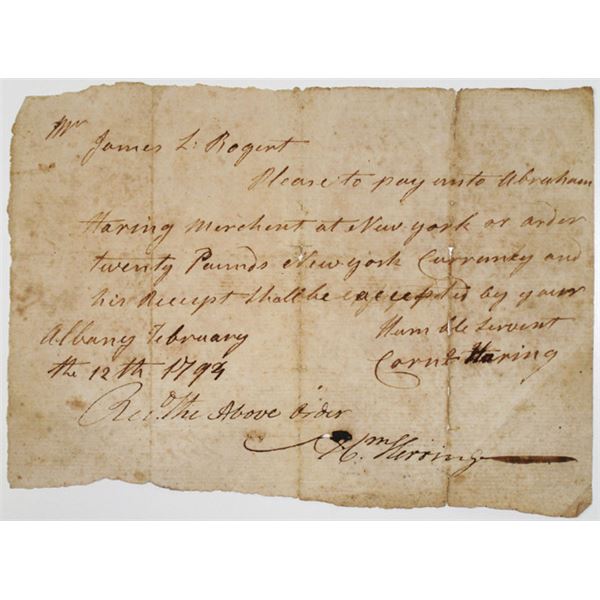 Mr
James L: Rogert
Please to pay unto Abraham
Haring Merchent at New york or order
twenty Pounds New york Currency and
his Receipt Shall be excepted by your
Humble Servent
Albany February
the 12th 1793
Cornl Haring
Recd. The Above Order
Abm Herring